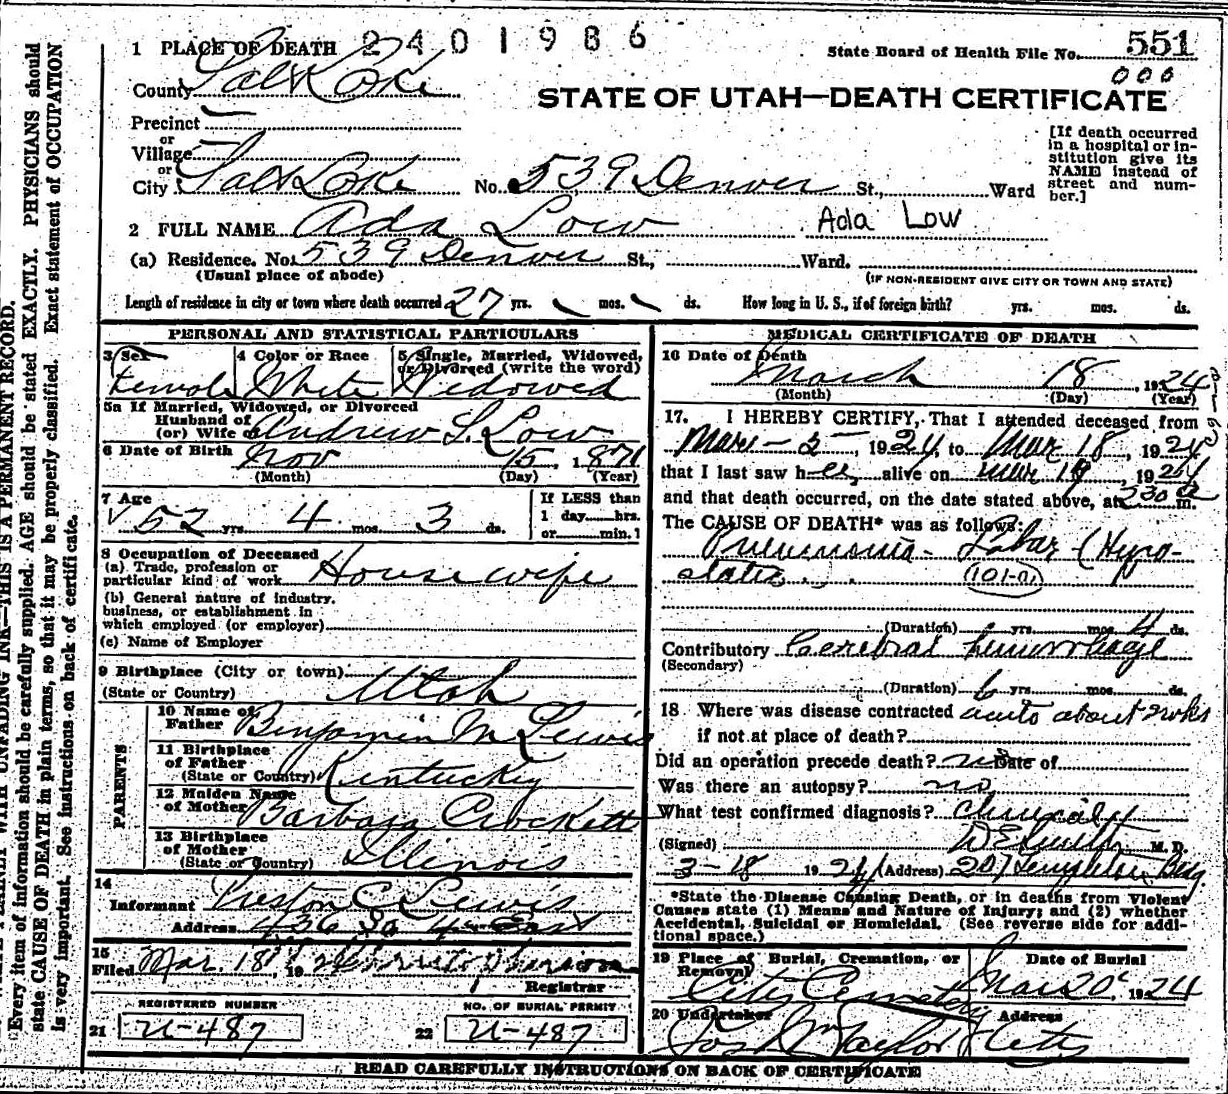 1 PLACE OF DEATH 2401986
State Board of Health File No. 551
000
County Salt Lake
STATE OF UTAH—DEATH CERTIFICATE
Precinct
or
Village
or
City Salt Lake No. 539 Denver St., Ward
[If death occurred
in a hospital or in-
stitution give its
NAME instead of
street and num-
ber.]
2 FULL NAME Ada Low Ada Low
(a) Residence. No. 539 Denver St., Ward.
(Usual place of abode) (IF NON-RESIDENT GIVE CITY OR TOWN AND STATE)
Length of residence in city or town where death occurred 27 yrs. mos. ds. How long in U. S., if of foreign birth? yrs. mos. ds.
PERSONAL AND STATISTICAL PARTICULARS
3 Sex 4 Color or Race 5 Single, Married, Widowed,
or Divorced (write the word)
Female White Widowed
5a If Married, Widowed, or Divorced
Husband of
(or) Wife of Andrew S. Low
6 Date of Birth Nov 15, 1871
(Month) (Day) (Year)
7 Age If LESS than
52 yrs. 4 mos. 3 ds. 1 day hrs.
or min.1
8 Occupation of Deceased
(a) Trade, profession or
particular kind of work Housewife
(b) General nature of industry,
business, or establishment in
which employed (or employer)
(c) Name of Employer
9 Birthplace (City or town)
(State or Country) Utah
PARENTS
10 Name of
Father Benjamin M Lewis
11 Birthplace
of Father
(State or Country) Kentucky
12 Maiden Name
of Mother Barbara Crockett
13 Birthplace
of Mother
(State or Country) Illinois
14
Informant Preston C Lewis
Address 436 So 4 East
15
Filed Mar. 18, 19
Registrar
REGISTERED NUMBER NO. OF BURIAL PERMIT
21 U-487 22 U-487
MEDICAL CERTIFICATE OF DEATH
16 Date of Death
March 18, 1924
(Month) (Day) (Year)
17. I HEREBY CERTIFY, That I attended deceased from
Mar - 2 -, 1924, to Mar 18, 1924
that I last saw her alive on Mar 1924
and that death occurred, on the date stated above, at 230 a m.
The CAUSE OF DEATH* was as follows:
Pneumonia - Lobar - (Hypo-
static
(101-a)
(Duration) yrs. mos. 4 ds.
Contributory Cerebral hemorrhage
(Secondary)
(Duration) 6 yrs. mos. ds.
18 Where was disease contracted acute about 2 wks
if not at place of death?
Did an operation precede death? no Date of
Was there an autopsy? no
What test confirmed diagnosis? Clinically
(Signed) M. D.
3-18 1924 (Address) 207 Templeton Bldg.
*State the Disease Causing Death, or in deaths from Violent
Causes state (1) Means and Nature of Injury; and (2) whether
Accidental, Suicidal or Homicidal. (See reverse side for addi-
tional space.)
19 Place of Burial, Cremation, or
Removal Date of Burial
City Cemetery Mar 20, 1924
20 Undertaker Address
Jos Wm Taylor City
READ CAREFULLY INSTRUCTIONS ON BACK OF CERTIFICATE
WITH UNFADING INK—THIS IS A PERMANENT RECORD.
Every item of information should be carefully supplied. AGE should be stated EXACTLY. PHYSICIANS should
state CAUSE OF DEATH in plain terms, so that it may be properly classified. Exact statement of OCCUPATION
is very important. See instructions on back of certificate.